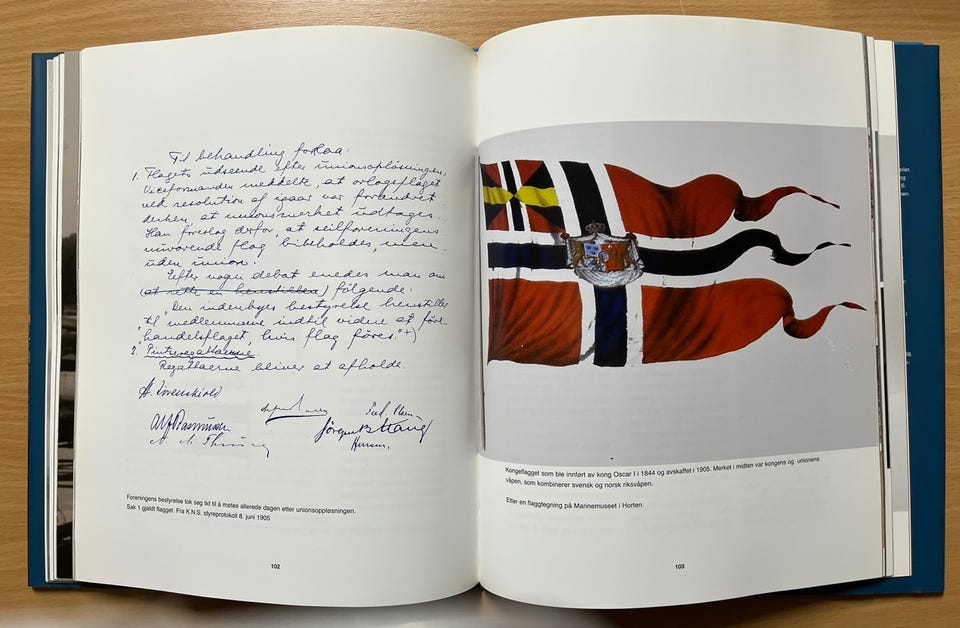 Til behandling forelaa:
1. Flagets udseende efter unionsopløsningen.
Viceformanden meddelte, at orlogsflaget
ved resolution af igaar var forandret
derhen, at unionsmerket udtages.
Han foreslog derfor, at seilforeningens
nuværende flag bibeholdes, men
uden union.
Efter nogen debat enedes man om
(at rette en henstillen) følgende:
"Den indenbyes bestyrelse henstiller
til medlemmerne indtil videre at føre
handelsflaget, hvis flag føres." +)
2. Pintseregattaerne.
Regattaerne bliver at afholde.
H. Løvenskiold
Alf Rasmussen
Jørgen B Stang
Foreningens bestyrelse tok seg tid til å møtes allerede dagen etter unionsoppløsningen.
Sak 1 gjaldt flagget. Fra K.N.S. styreprotokoll 8. juni 1905
102
Kongeflagget som ble innført av kong Oscar I i 1844 og avskaffet i 1905. Merket i midten var kongens og unionens
våpen, som kombinerer svensk og norsk riksvåpen.
Etter en flaggtegning på Marinemuseet i Horten.
103